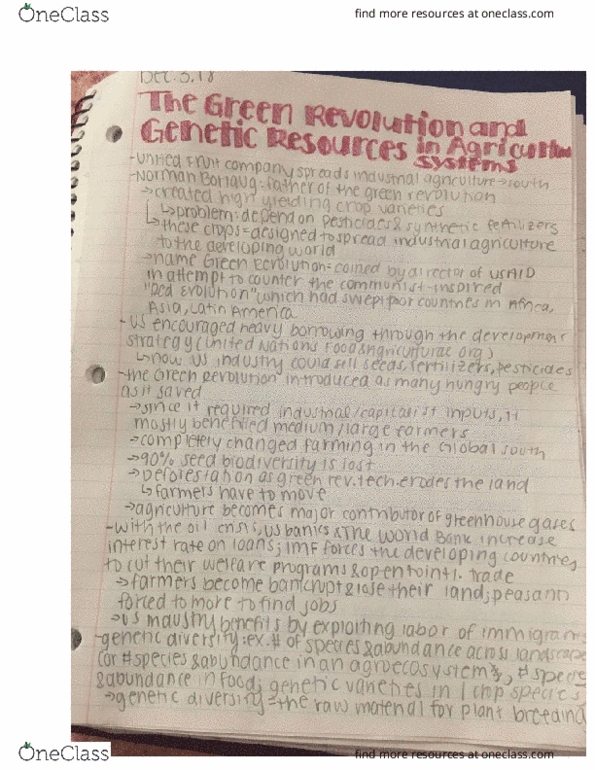 OneClass
find more resources at oneclass.com
Dec. 3, 18
The Green Revolution and
Genetic Resources in Agricultural
systems
-United Fruit company spreads industrial agriculture→south
-Norman Borlaug: father of the green revolution
→created high yielding crop varieties
↳problem: depend on pesticides & synthetic fertilizers
↳these crops=designed to spread industrial agriculture
to the developing world
→name Green Revolution=coined by director of USAID
in attempt to counter the communist-inspired
"Red Evolution" which had swept poor countries in Africa,
Asia, Latin America
-US encouraged heavy borrowing through the development
strategy (United Nations Food & Agricultural Org)
↳now US industry could sell seeds, fertilizers, pesticides
-the Green Revolution introduced as many hungry people
as it saved
→since it required industrial/capitalist inputs, it
mostly benefited medium/large farmers
→completely changed farming in the Global south
→90% seed biodiversity is lost
→Deforestation as green rev. tech. erodes the land
↳farmers have to move
→agriculture becomes major contributor of greenhouse gases
-with the oil crisis, US banks & the World Bank increase
interest rate on loans; IMF forces the developing countries
to cut their welfare programs & open to int'l. trade
→farmers become bankrupt & lose their land; peasant
forced to move to find jobs
→US industry benefits by exploiting labor of immigrants
-genetic diversity: ex. # of species & abundance across landscape
(or # species & abundance in an agroecosystem), # species
& abundance in food; genetic varieties in 1 crop species
→genetic diversity=the raw material for plant breeding
OneClass
find more resources at oneclass.com